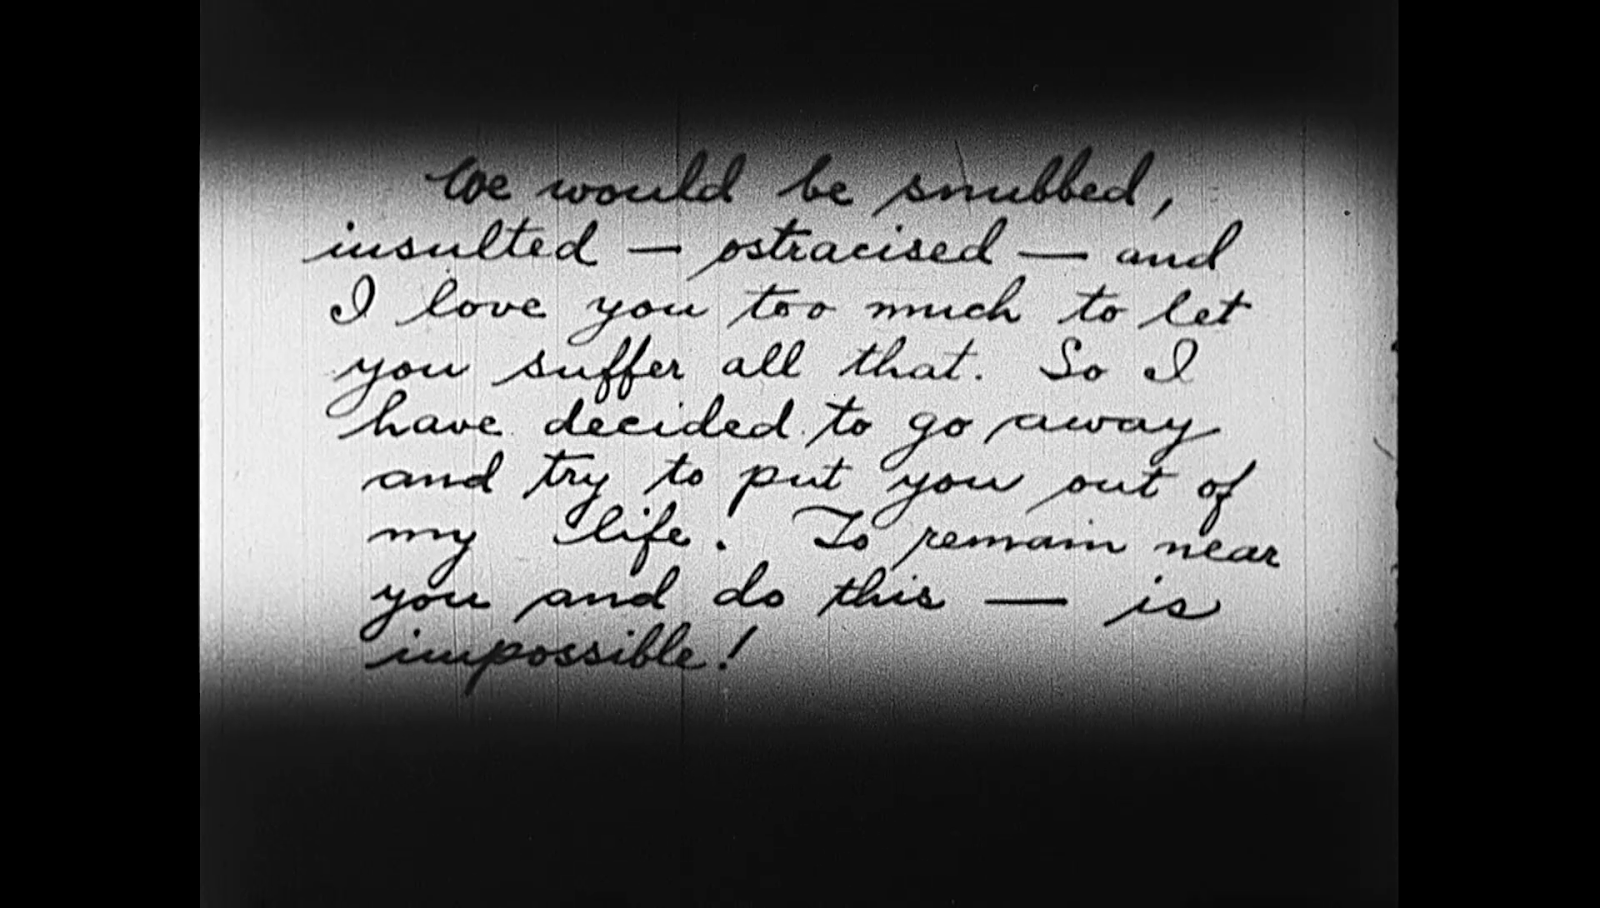 We would be snubbed,
insulted — ostracised — and
I love you too much to let
you suffer all that. So I
have decided to go away
and try to put you out of
my life. To remain near
you and do this — is
impossible!